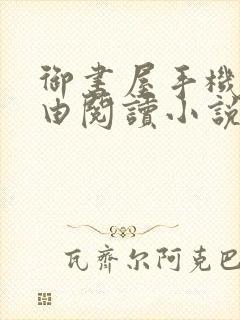 御書屋手機
由閱讀小說
瓦齊尔阿克巴